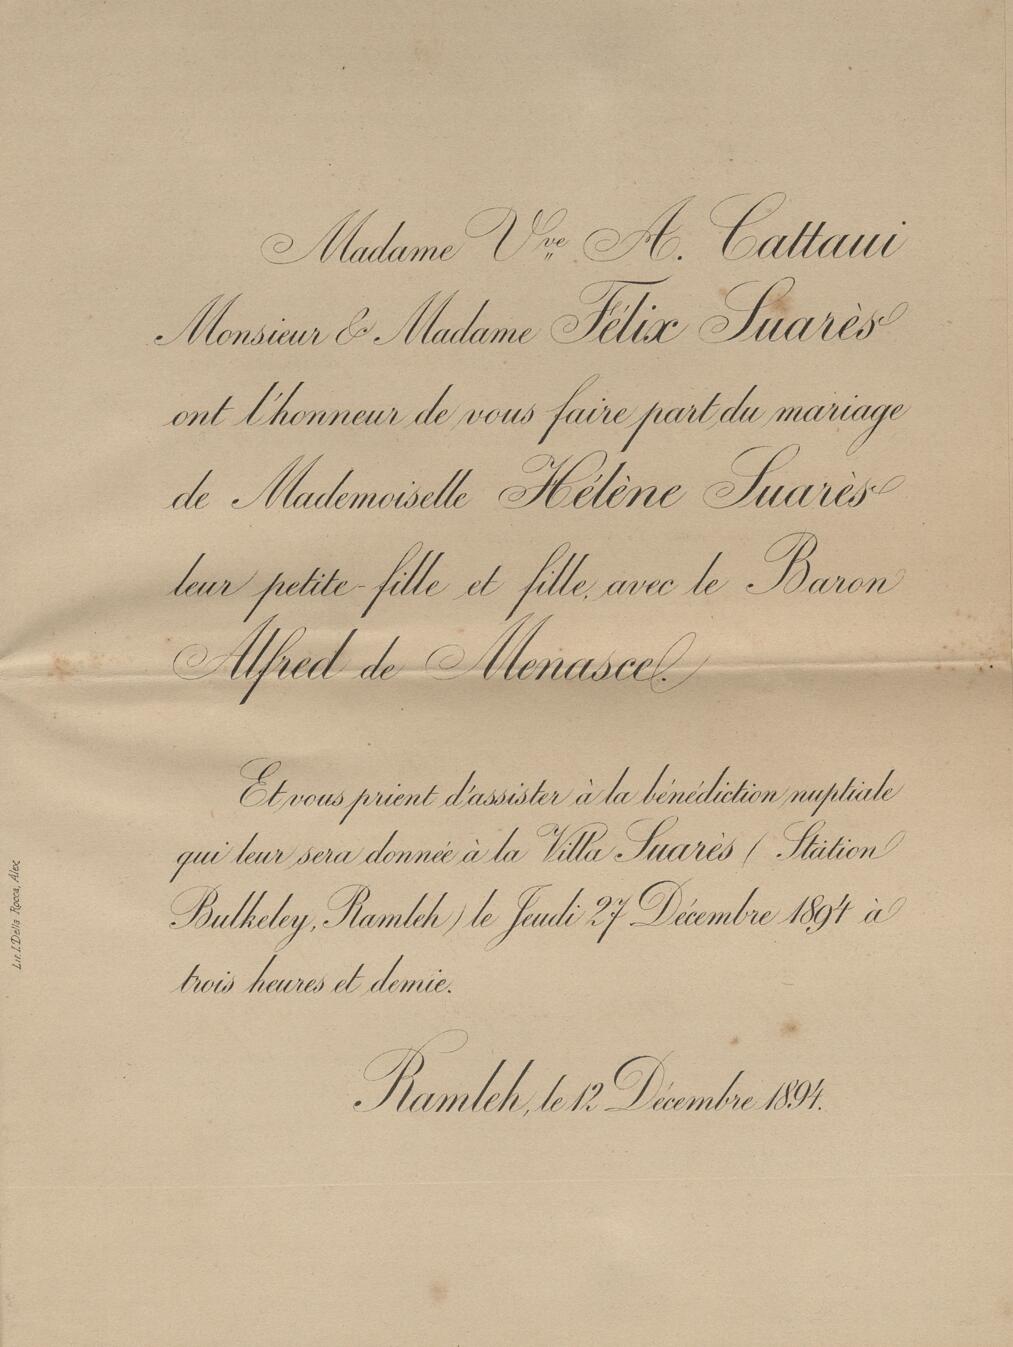 Madame Vve A. Cattaui
Monsieur & Madame Félix Suarès
ont l'honneur de vous faire part du mariage
de Mademoiselle Hélène Suarès
leur petite-fille et fille, avec le Baron
Alfred de Menasce.
Et vous prient d'assister à la bénédiction nuptiale
qui leur sera donnée à la Villa Suarès (Station
Bulkeley, Ramleh) le Jeudi 27 Décembre 1894 à
trois heures et demie.
Ramleh, le 12 Décembre 1894.
Lit. I. Della Rocca, Alex